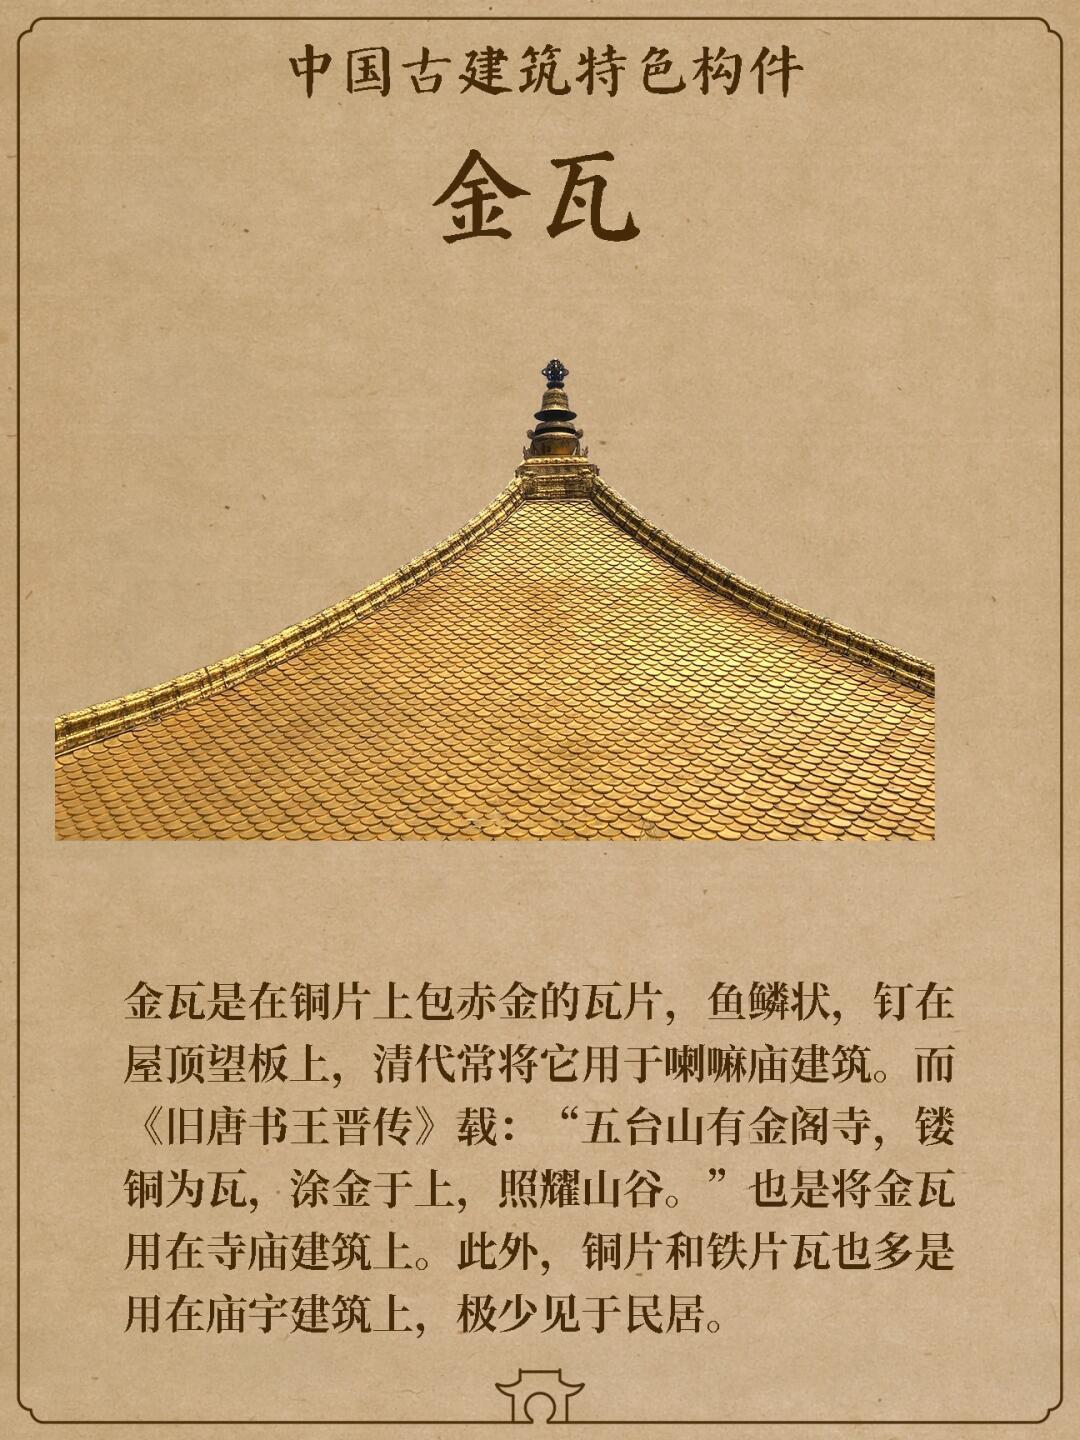 中国古建筑特色构件
金瓦
金瓦是在铜片上包赤金的瓦片，鱼鳞状，钉在
屋顶望板上，清代常将它用于喇嘛庙建筑。而
《旧唐书王晋传》载：“五台山有金阁寺，镂
铜为瓦，涂金于上，照耀山谷。”也是将金瓦
用在寺庙建筑上。此外，铜片和铁片瓦也多是
用在庙宇建筑上，极少见于民居。